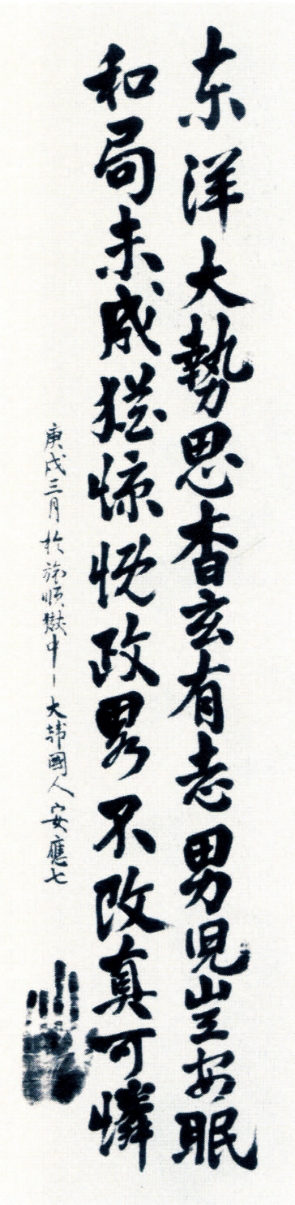 东洋大勢思杳玄有志男児豈安眠
和局未成猶慷慨政畧不改真可憐
庚戌三月 於旅順獄中 大韓國人 安應七